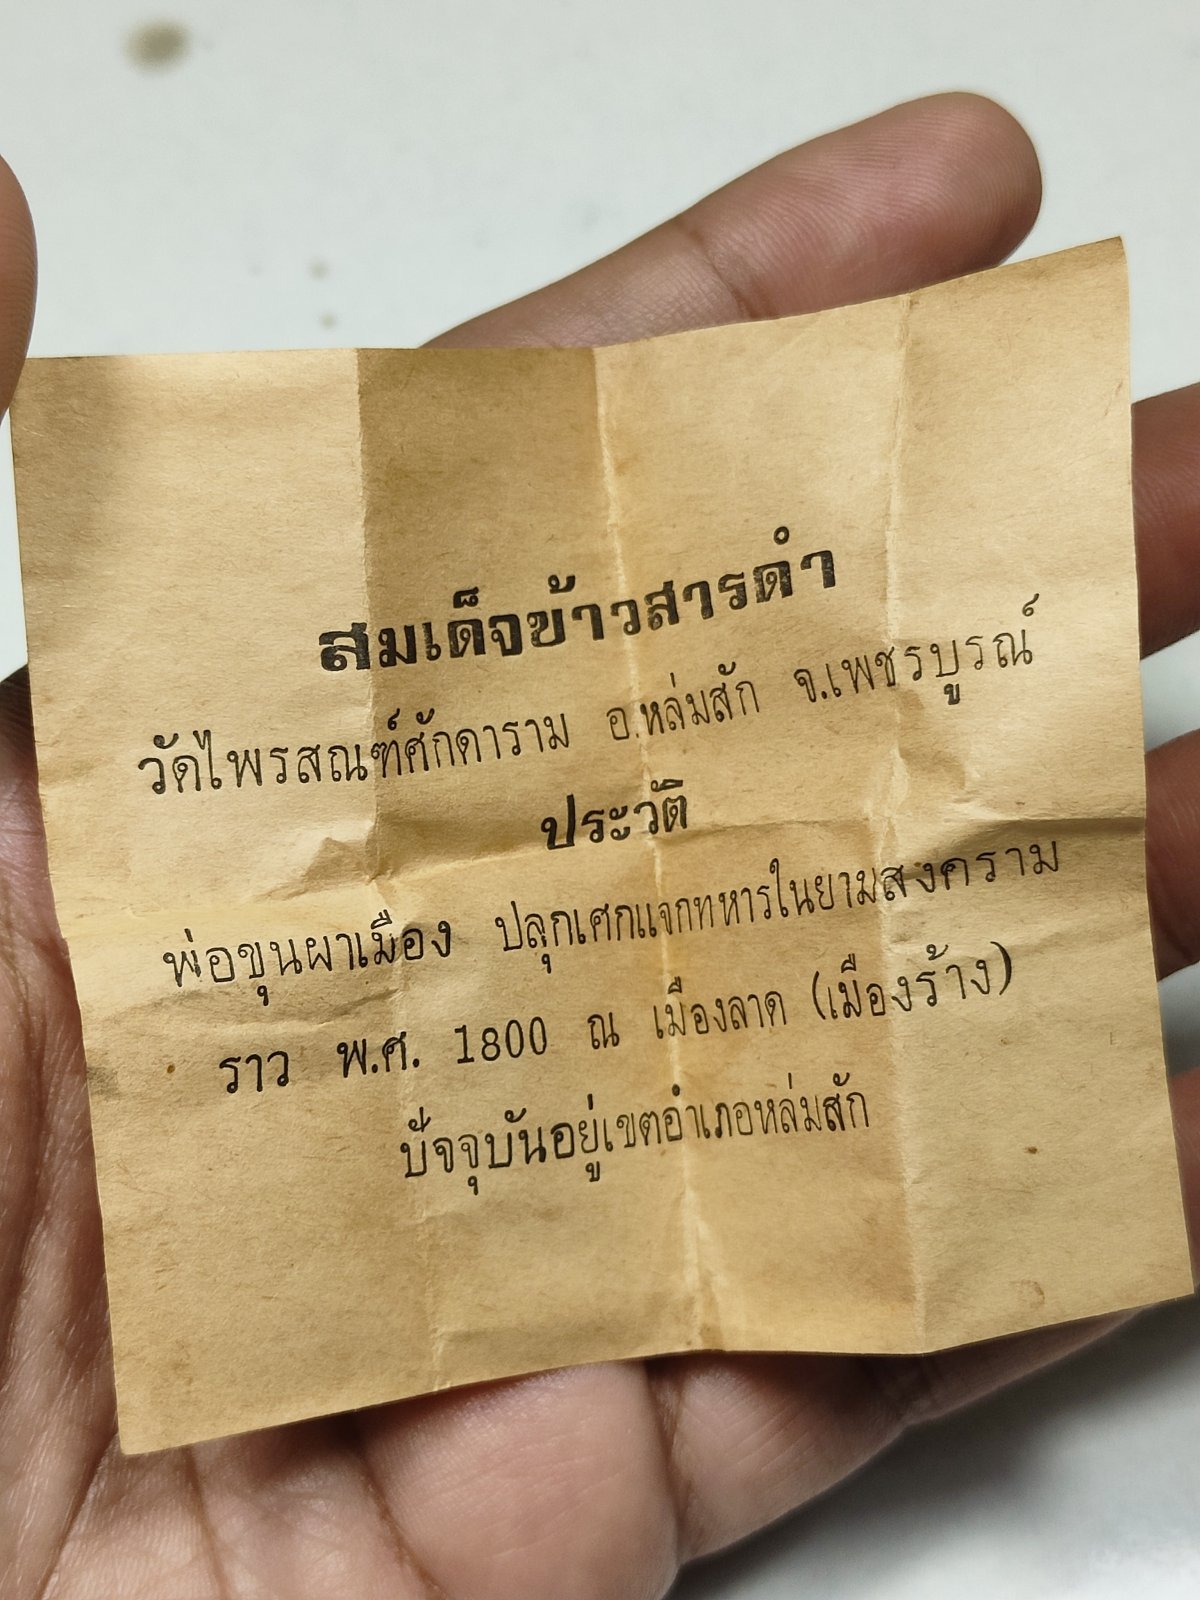 สมเด็จข้าวสารดำ
วัดไพรสณฑ์ศักดาราม อ.หล่มสัก จ.เพชรบูรณ์
ประวัติ
พ่อขุนผาเมือง ปลุกเศกแจกทหารในยามสงคราม
ราว พ.ศ. 1800 ณ เมืองลาด (เมืองร้าง)
ปัจจุบันอยู่เขตอำเภอหล่มสัก